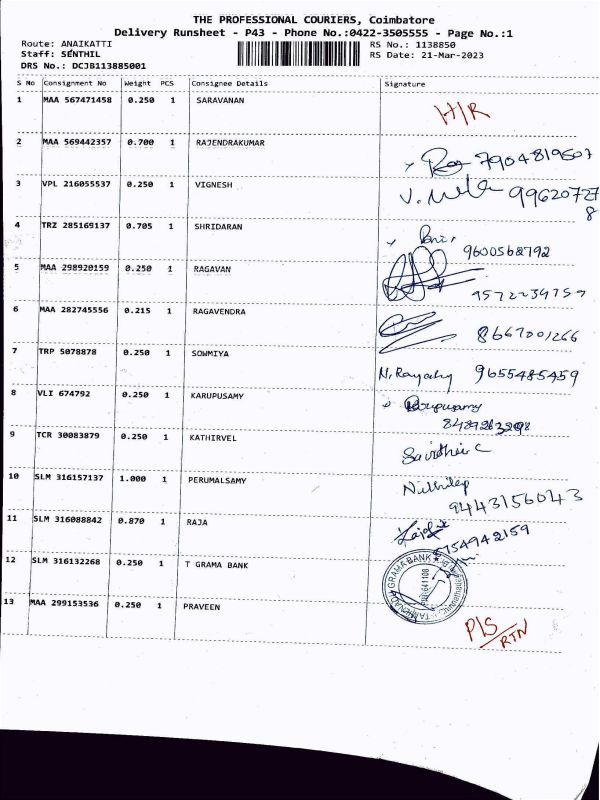 THE PROFESSIONAL COURIERS, Coimbatore
Delivery Runsheet - P43 - Phone No.:0422-3505555 - Page No.:1
Route: ANAIKATTI
Staff: SENTHIL
DRS No.: DCJB113885001
RS No.: 1138850
RS Date: 21-Mar-2023
S No Consignment No Weight PCS Consignee Details Signature
1 MAA 567471458 0.250 1 SARAVANAN H/R
2 MAA 569442357 0.700 1 RAJENDRAKUMAR 7904819507
3 VPL 216055537 0.250 1 VIGNESH 99620727
8
4 TRZ 285169137 0.705 1 SHRIDARAN 9600568792
5 MAA 298920159 0.250 1 RAGAVAN 9572239759
6 MAA 282745556 0.215 1 RAGAVENDRA 8667001266
7 TRP 5078878 0.250 1 SOWMIYA 9655485459
8 VLI 674792 0.250 1 KARUPUSAMY Karupusamy
9 TCR 30083879 0.250 1 KATHIRVEL
10 SLM 316157137 1.000 1 PERUMALSAMY 9443156043
11 SLM 316088842 0.870 1 RAJA 8754942159
12 SLM 316132268 0.250 1 T GRAMA BANK
13 MAA 299153536 0.250 1 PRAVEEN P/S
RTN